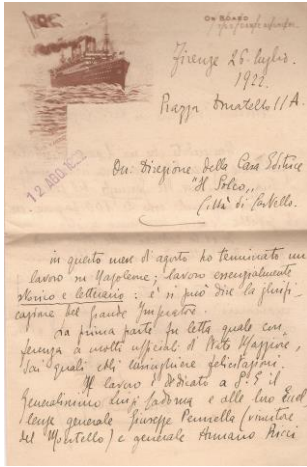 ON BOARD
Firenze 26 luglio
1922
Piazza Donatello 11A
12 AGO. 1922
On: Direzione della Casa Editrice
"Il Solco„
Città di Castello.
in questo mese d'agosto ho terminato un
lavoro su Napoleone; lavoro essenzialmente
storico e letterario: e si può dire la glorifi-
cazione del Grande Imperatore
La prima parte fu letta quale con
ferenza a molti ufficiali di Stato Maggiore,
dai quali ebbi lusinghiere felicitazioni.
Il lavoro è dedicato a S. E il
Generalissimo Luigi Cadorna e alle loro Eccel
lenze generale Giuseppe Pennella (vincitore
del Montello) e generale Armano Ricci